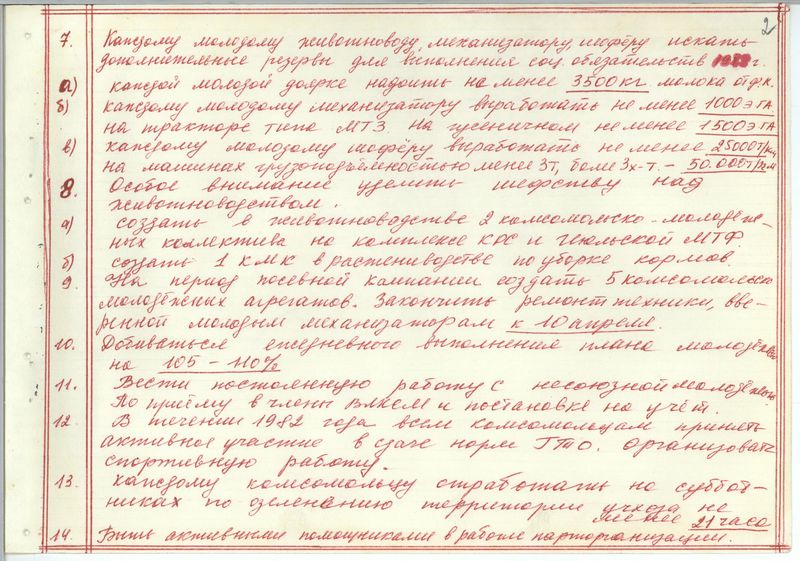 2
7. Каждому молодому животноводу, механизатору, шофёру искать
дополнительные резервы для выполнения соц. обязательств г.
а) каждой молодой доярке надоить не менее 3500 кг молока от ф.к.
б) каждому молодому механизатору выработать не менее 1000 э га
на тракторе типа МТЗ на гусеничном не менее 1500 э га
в) каждому молодому шофёру выработать не менее 25000 т/км,
на машинах грузоподъёмностью менее 3т, более 3х-т. – 50.000 т/км
8. Особое внимание уделить шефству над
животноводством.
а) создать в животноводстве 2 комсомольско-молодёж-
ных коллектива на комплексе КРС и МТФ.
б) создать 1 КМК в растениводстве по уборке кормов.
9. На период посевной кампании создать 5 комсомольско
молодёжных агрегатов. Закончить ремонт техники, вве-
ренной молодым механизаторам к 10 апреля.
10. Добиваться ежедневного выполнения плана молодёжью
на 105 – 110%
11. Вести постоянную работу с несоюзной молодёжью
По приёму в члены ВЛКСМ и постановке на учёт.
12. В течении 1982 года всем комсомольцам принять
активное участие в сдаче норм ГТО. Организовать
спортивную работу.
13. Каждому комсомольцу отработать на суббот-
никах по озеленению территории учхоза не
менее 21 часа
14. Быть активными помощниками в работе парторганизации.